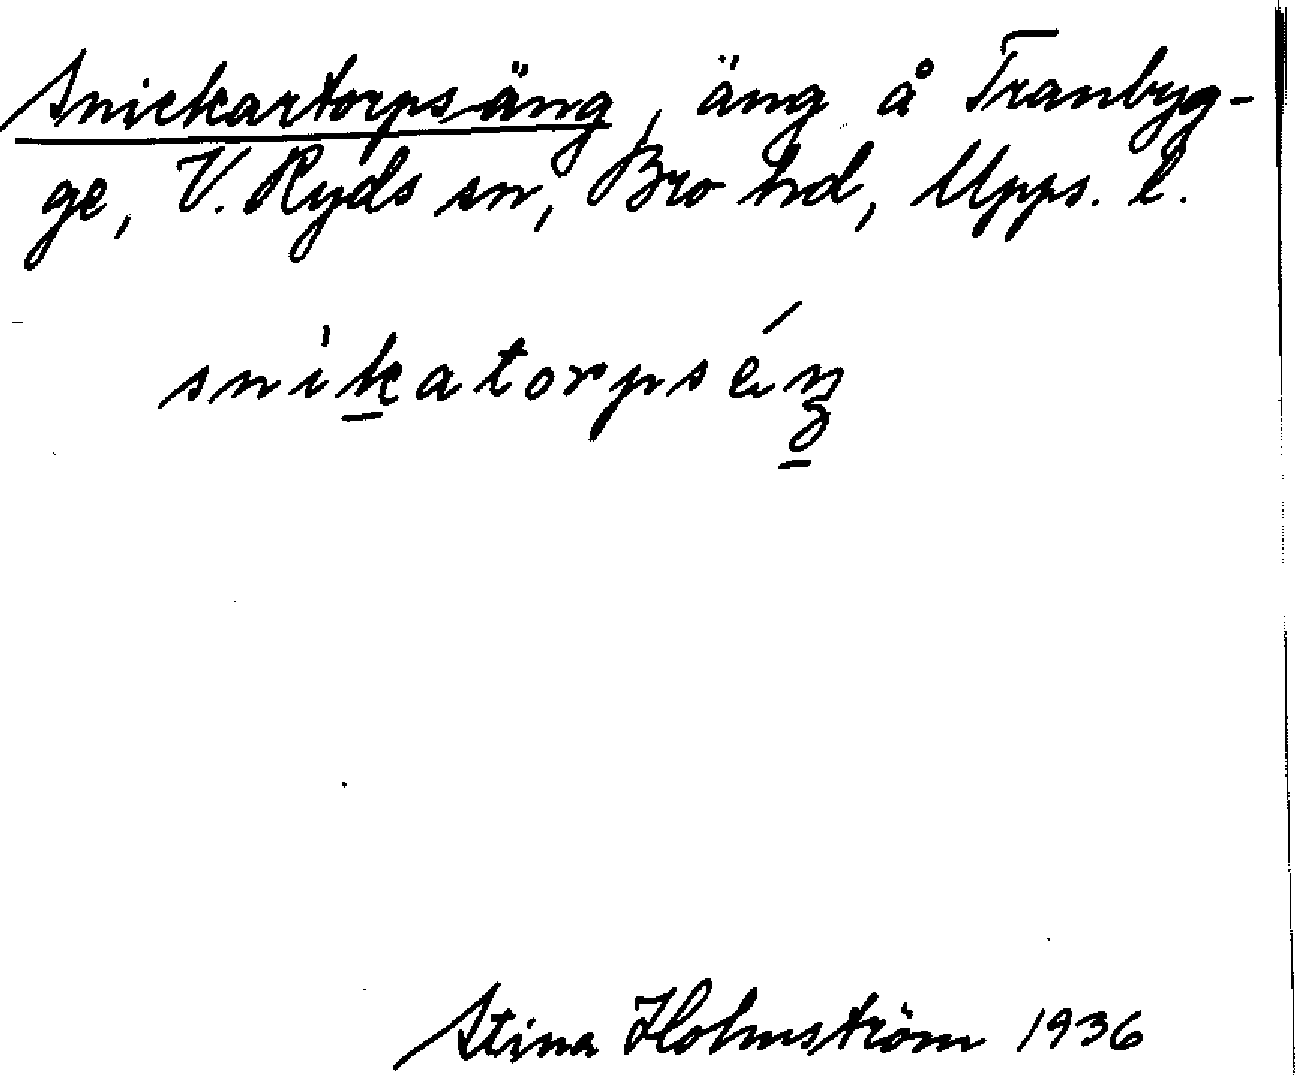 Snickartorpsäng, äng å Tranbyg-
ge, V. Ryds sn, Bro hd, Upps. l.
snikatorpséŋ
Stina Holmström 1936